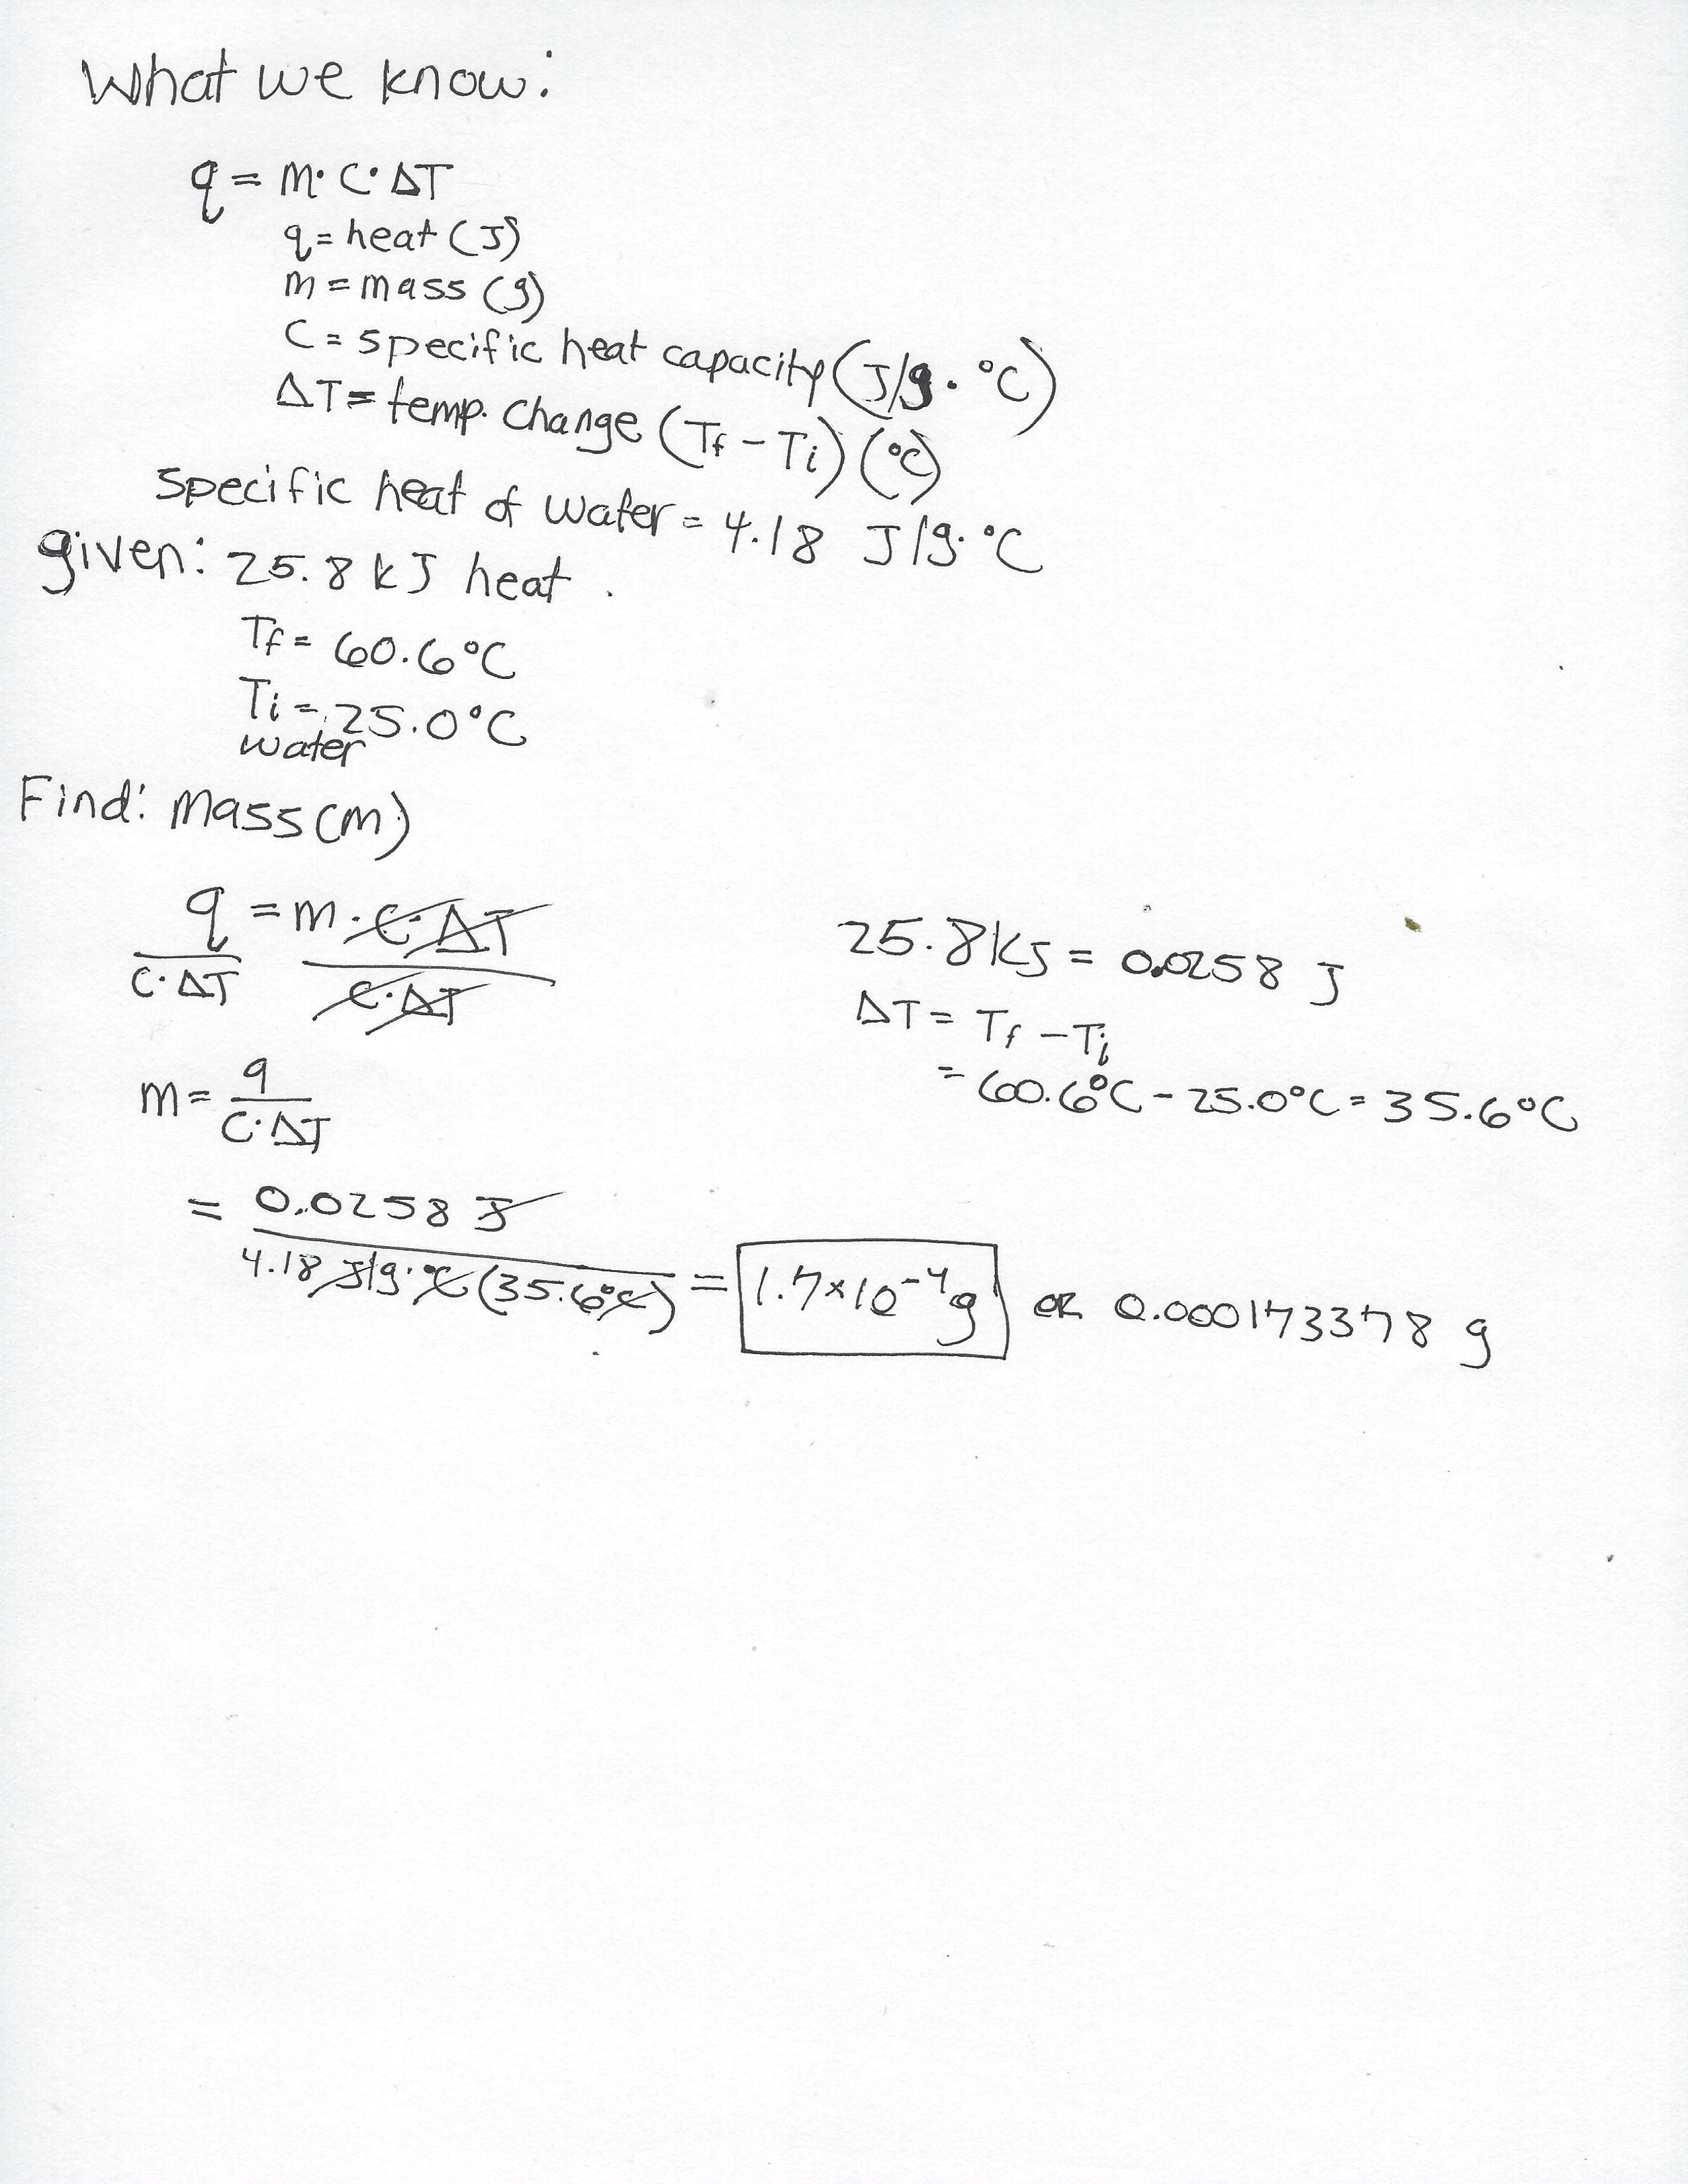 What we know:
q = m· C· ΔT
q = heat (J)
m = mass (g)
C = specific heat capacity (J/g· °C)
ΔT = temp. change (Tf - Ti) (°C)
specific heat of water = 4.18 J/g· °C
given: 25.8 kJ heat .
Tf = 60.6°C
Ti = 25.0°C
water
Find: mass (m)
q = m · C· ΔT
C· ΔT C· ΔT
m = q
C· ΔT
= 0.0258 J
4.18 J/g· °C (35.6°C) = 1.7 × 10⁻⁴ g or 0.000173378 g
25.8 kJ = 0.0258 J
ΔT = Tf - Ti
= 60.6°C - 25.0°C = 35.6°C